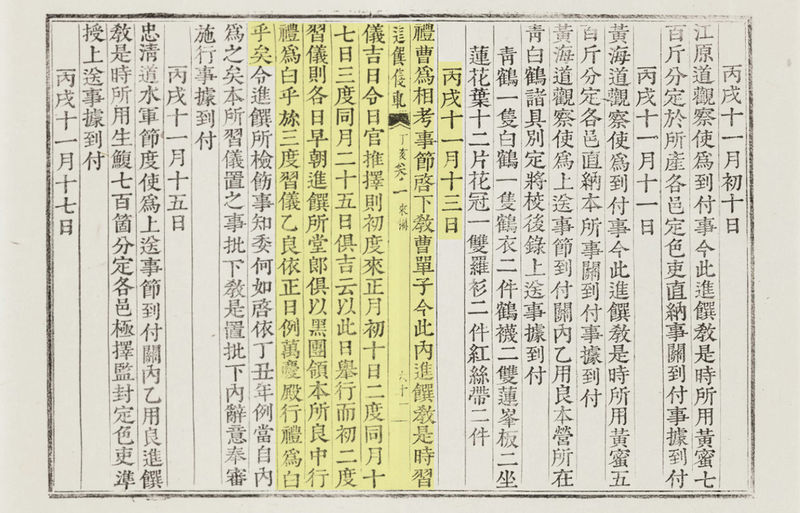 丙戌十一月初十日
江原道觀察使爲到付事今此進饌敎是時所用黃蜜七
百斤分定於所產各邑定色吏直納事關到付事據到付
丙戌十一月十一日
黃海道觀察使爲到付事今此進饌敎是時所用黃蜜五
百斤分定各邑直納本所事關到付事據到付
黃海道觀察使爲上送事節到付關內乙用良本營所在
靑白鶴諸具別定將校後錄上送事據到付
靑鶴一隻白鶴一隻鶴衣二件鶴襪二雙蓮峯板二坐
蓮花葉十二片花冠一雙羅衫二件紅絲帶二件
丙戌十一月十三日
禮曹爲相考事節啓下敎曹單子今此內進饌敎是時習
進饌儀軌 丁亥 卷一 來牒 六十
儀吉日令日官推擇則初度來正月初十日二度同月十
七日三度同月二十五日俱吉云以此日擧行而初二度
習儀則各日早朝進饌所堂郞俱以黑團領本所良中行
禮爲白乎旀三度習儀乙良依正日例萬慶殿行禮爲白
乎矣令進饌所檢飭事知委何如啓依丁丑年例當自內
爲之矣本所習儀置之事批下敎是置批下內辭意奉審
施行事據到付
丙戌十一月十五日
忠淸道水軍節度使爲上送事節到付關內乙用良進饌
敎是時所用生鰒七百箇分定各邑極擇監封定色吏準
授上送事據到付
丙戌十一月十七日